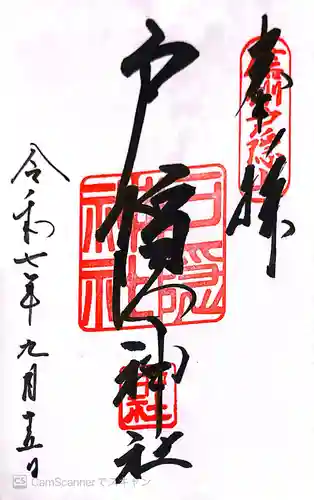 奉拝
信州戸隠山
戸隠神社
戸隠神社
令和七年九月十五日
CS CamScannerでスキャン